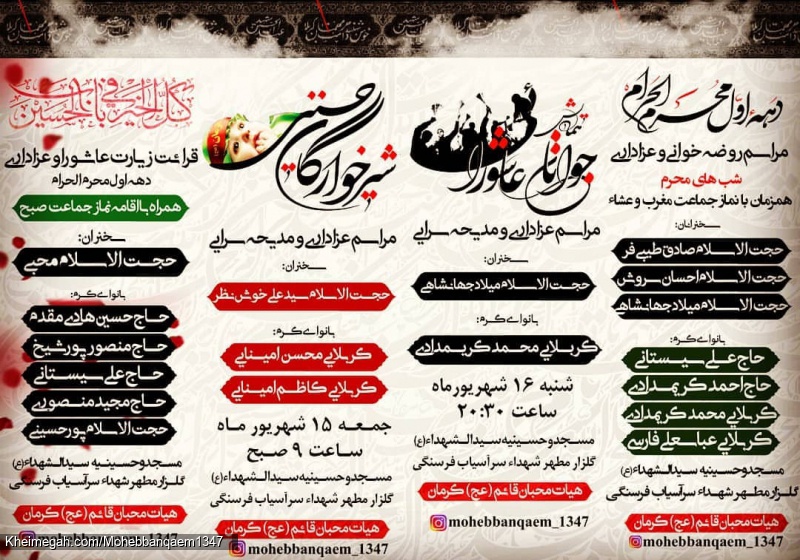 دهه اول محرم الحرام
مراسم روضه خوانی و عزاداری
شب های محرم
همزمان با نماز جماعت مغرب و عشاء
سخنرانان:
حجت الاسلام صادق طیبی فر
حجت الاسلام احسان سروش
حجت الاسلام میلاد جهانشاهی
بانوای گرم:
حاج علی سیستانی
حاج احمد کریمدادی
کربلایی محمد کریمدادی
کربلایی عباسعلی فارسی
مسجد و حسینیه سیدالشهداء(ع)
گلزار مطهر شهداء سرآسیاب فرسنگی
هیات محبان قائم (عج) کرمان
mohebbanqaem_1347
جوانان عاشورا
مراسم عزاداری و مدیحه سرایی
سخنران:
حجت الاسلام میلاد جهانشاهی
بانوای گرم:
کربلایی محمد کریمدادی
شنبه ۱۶ شهریور ماه
ساعت ۲۰:۳۰
مسجد و حسینیه سیدالشهداء(ع)
گلزار مطهر شهداء سرآسیاب فرسنگی
هیات محبان قائم (عج) کرمان
mohebbanqaem_1347
شیرخوارگان حسینی
مراسم عزاداری و مدیحه سرایی
سخنران:
حجت الاسلام سید علی خوش نظر
بانوای گرم:
کربلایی محسن امینایی
کربلایی کاظم امینایی
جمعه ۱۵ شهریور ماه
ساعت ۹ صبح
مسجد و حسینیه سیدالشهداء(ع)
گلزار مطهر شهداء سرآسیاب فرسنگی
هیات محبان قائم (عج) کرمان
mohebbanqaem_1347
کل الخیر فی باب الحسین
قرائت زیارت عاشورا و عزاداری
دهه اول محرم الحرام
همراه با اقامه نماز جماعت صبح
سخنران:
حجت الاسلام محبی
بانوای گرم:
حاج حسین هادی مقدم
حاج منصور پورشیخ
حاج علی سیستانی
حاج مجید منصوری
حجت الاسلام پورحسینی
مسجد و حسینیه سیدالشهداء(ع)
گلزار مطهر شهداء سرآسیاب فرسنگی
هیات محبان قائم (عج) کرمان
Kheimegah.com/Mohebbanqaem1347